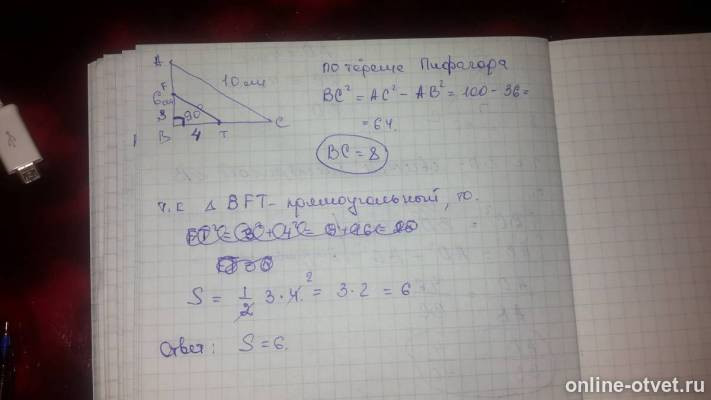 A
10 см
F
6см
3
90°
B
4
T
C
по теореме Пифагора
BC² = AC² - AB² = 100 - 36 =
= 64.
BC = 8
т.к Δ BFT - прямоугольный, то.
S = 1/2 3 · 4 ² = 3 · 2 = 6
Ответ: S = 6.
online-otvet.ru